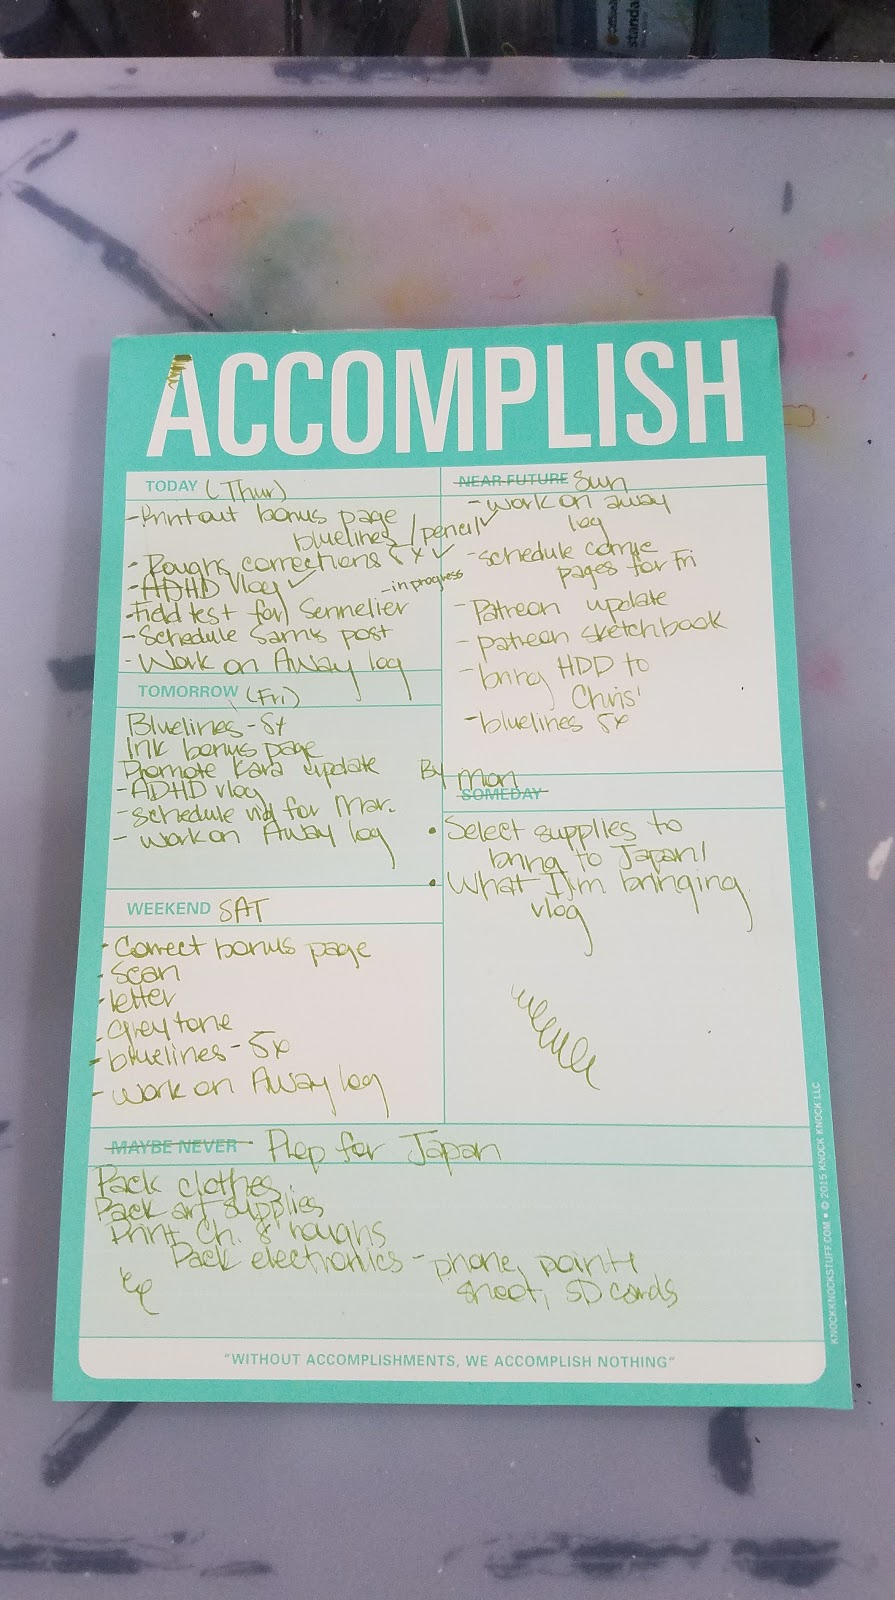 standa
ACCOMPLISH
TODAY (Thur)
-Printout bonus page
bluelines/pencil✓
- Roughs corrections 5x ✓
-ADHD Vlog ✓
-in progress
-Field test for Sennelier
-Schedule Sam's post
- Work on Away log
TOMORROW (Fri)
Bluelines-5x
Ink bonus page
Promote Kara update
-ADHD vlog
-Schedule vid for Mar.
- work on Away log
WEEKEND SAT
- Correct bonus page
- Scan
- letter
- Greytone
- bluelines- 5x
- work on Away log
NEAR FUTURE Sun
- Work on away
log
-schedule comic
pages for Fri
-Patreon update
- patreon sketchbook
- bring HDD to
Chris'
-bluelines 5x
By Mon
SOMEDAY
• Select supplies to
bring to Japan!
• What I'm bringing
vlog
MAYBE NEVER Prep for Japan
Pack clothes
Pack art supplies
Print Ch. 8 roughs
Pack electronics - phone, point+
shoot, SD cards
"WITHOUT ACCOMPLISHMENTS, WE ACCOMPLISH NOTHING"
KNOCKKNOCKSTUFF.COM • © 2015 KNOCK KNOCK LLC